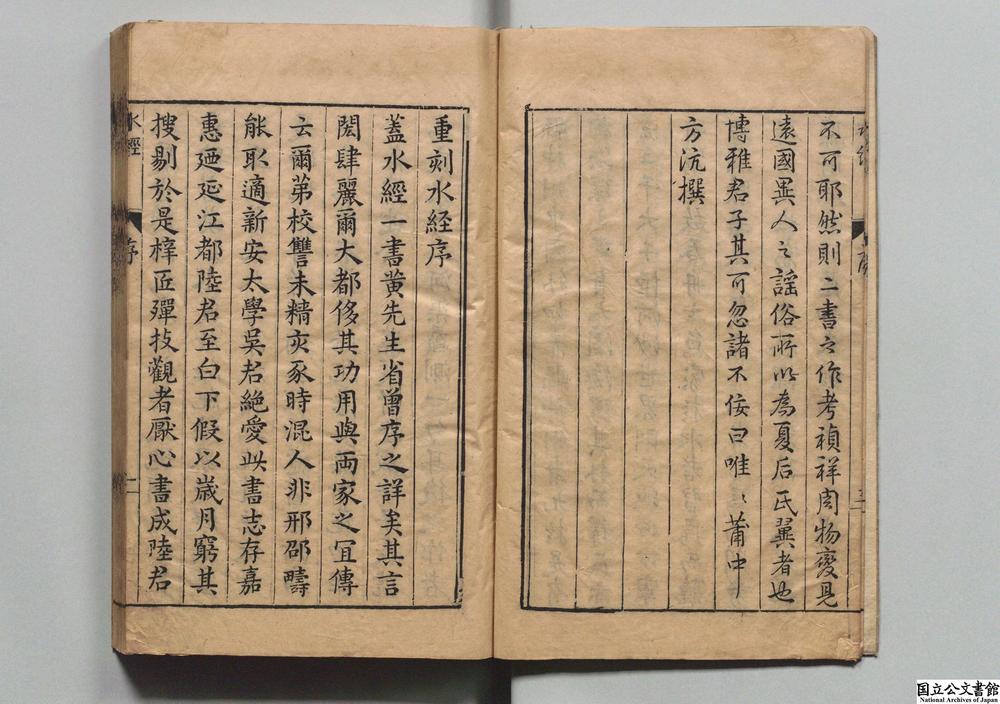 不可耶然則二書之作考禎祥周物變見
遠國異人之謡俗所以為夏后氏翼者也
博雅君子其可忽諸不佞曰唯〻莆中
方沆撰
重刻水経序
蓋水經一書黄先生省曾序之詳矣其言
閎肆麗爾大都侈其功用與両家之冝傳
云爾弟校讐未精灾豕時混人非邢邵疇
能耴適新安太學吳君絶愛此書志存嘉
惠廼延江都陸君至白下假以歳月窮其
搜剔於是梓匠殫技觀者厭心書成陸君
水經
序
二
国立公文書館
National Archives of Japan